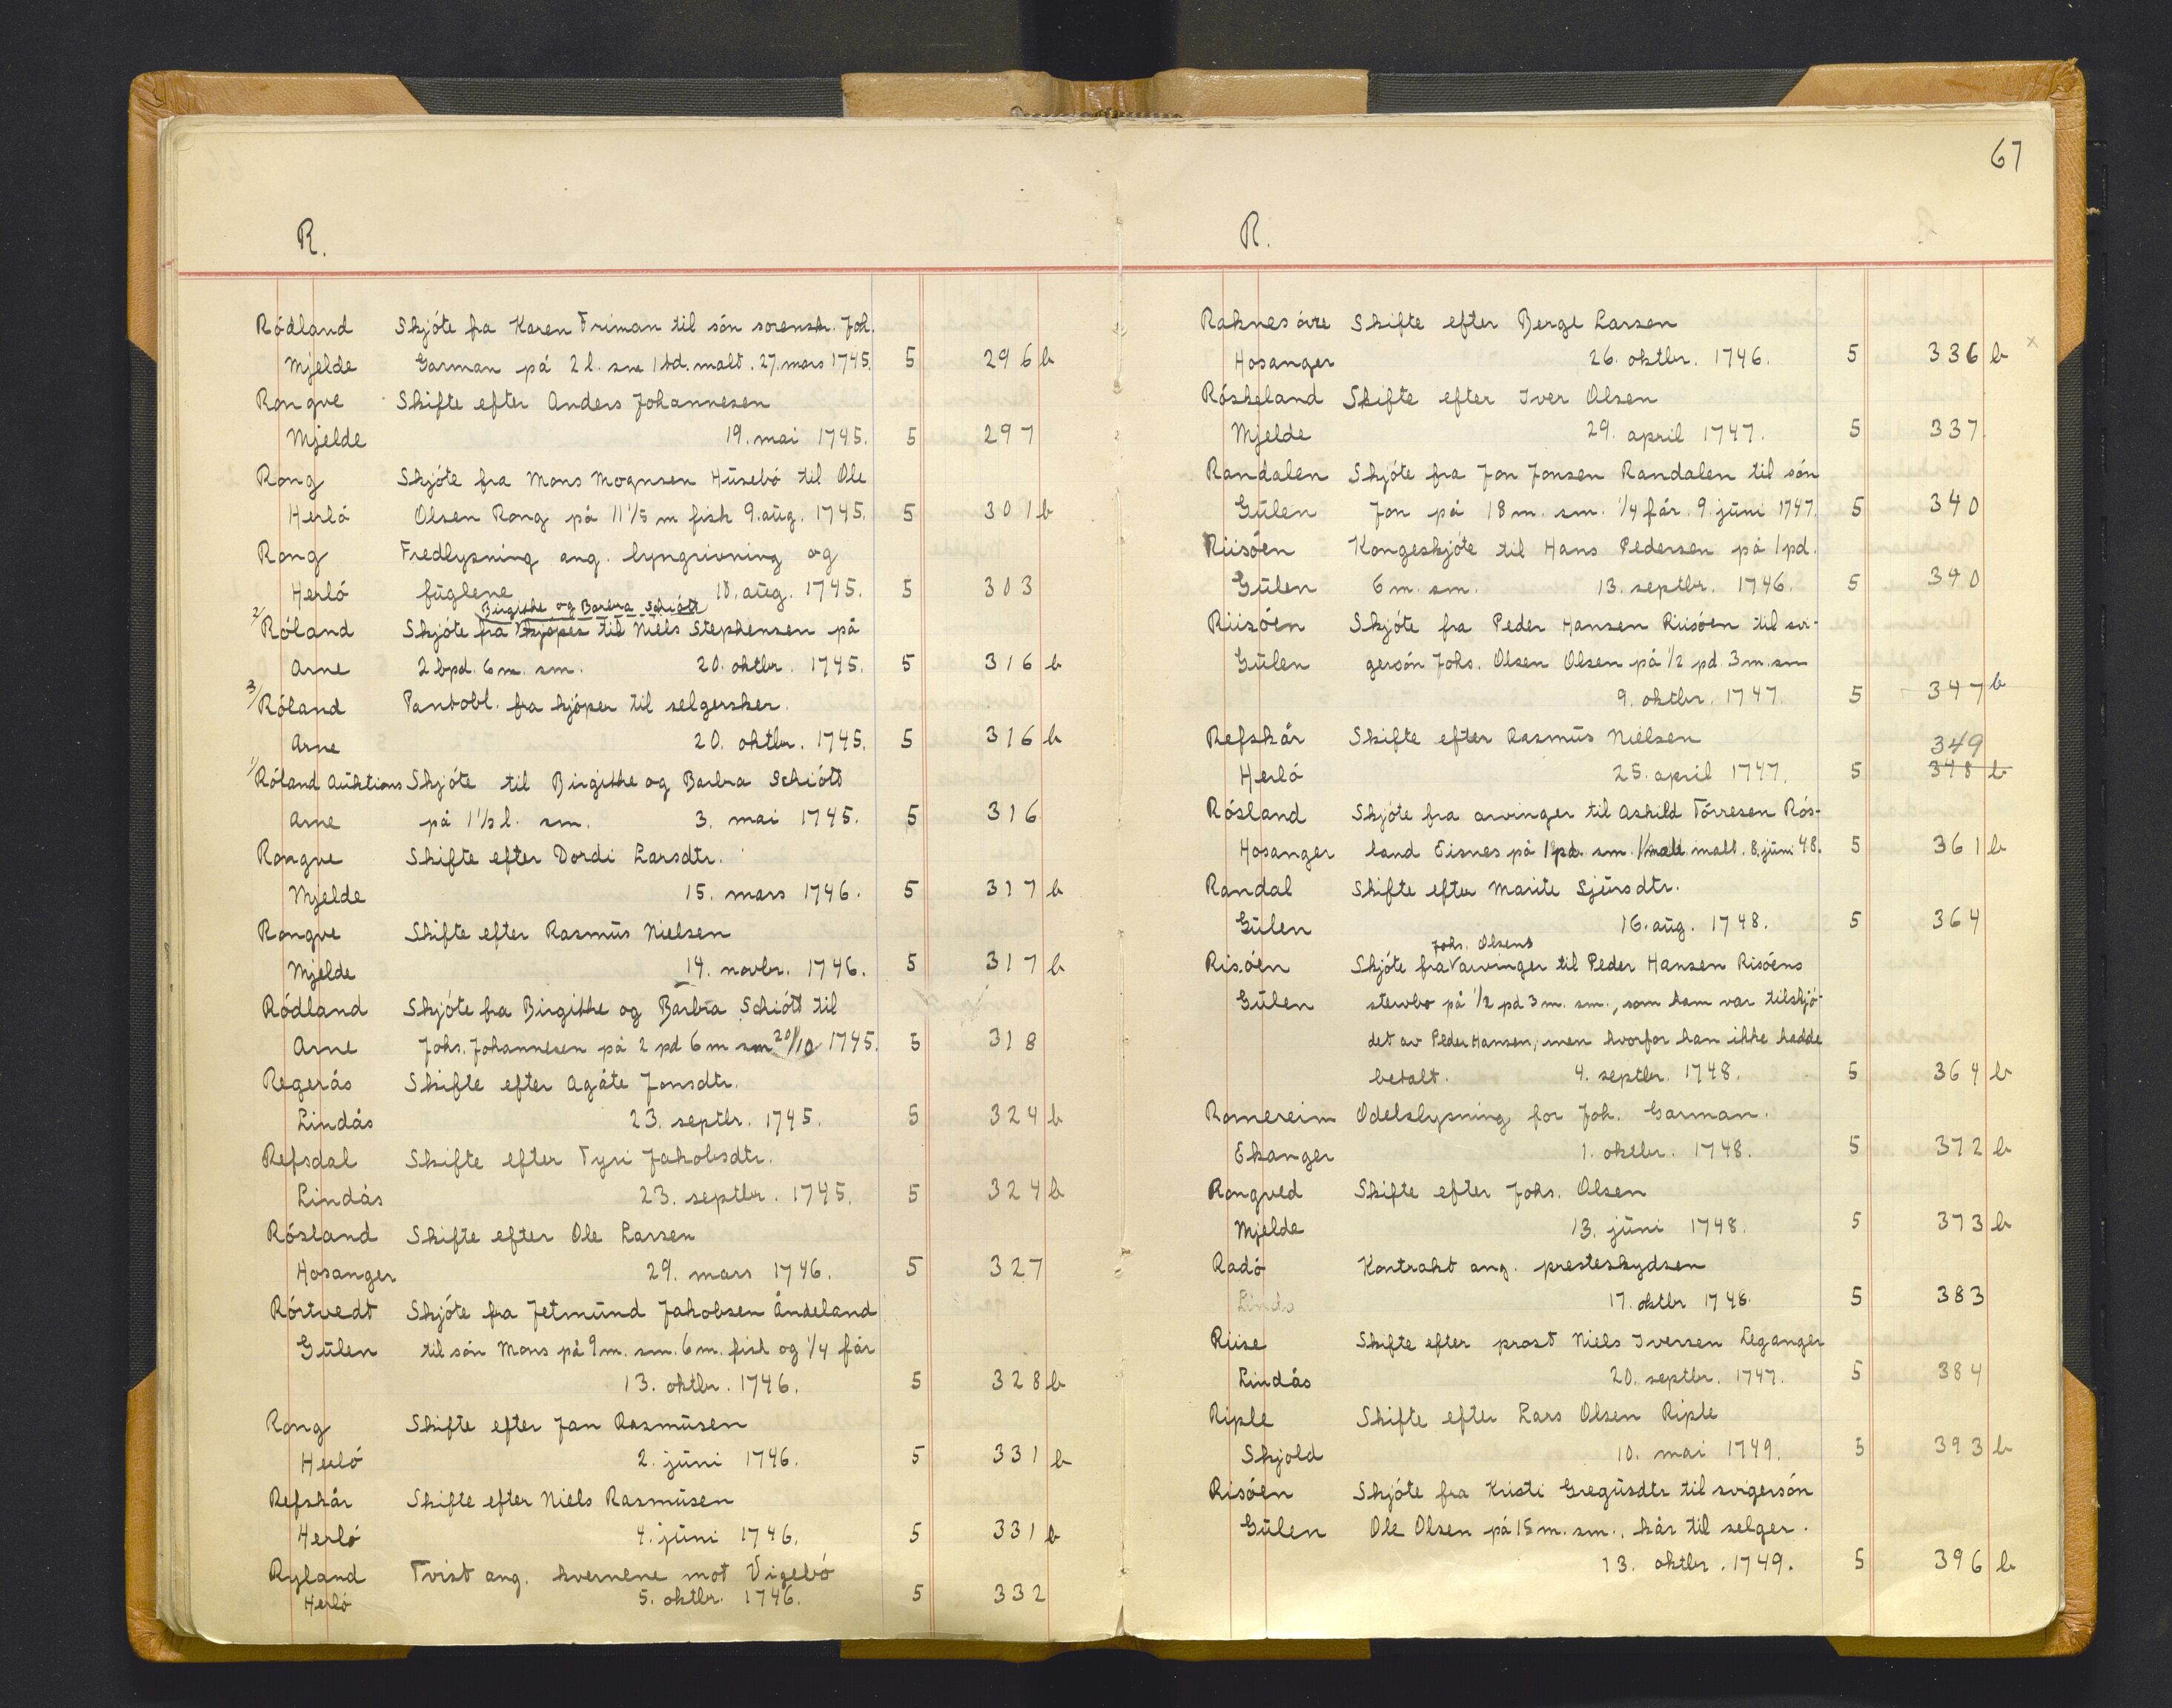 R.
Ródland Skjóte fra Karen Friman til són sorenskr. Joh.
Mjelde Garman på 2 l. sm 1 td. malt. 27. mars 1745. 5 296 b
Rongve Skifte efter Anders Johannesen
Mjelde 19. mai 1745. 5 297
Rong Skjóte fra Mons Mognsen Húsebó til Ole
Herló Olsen Rong på 11 1/5 m fisk 9. aúg. 1745. 5 301 b
Rong Fredlysning ang. lyngrivning og
Herló fúglene 10. aúg. 1745. 5 303
Birgithe og Barbra Schiótt
2/ Róland Skjóte fra kjóper til Niels Stephensen på
Arne 2 bpd. 6 m. sm. 20. oktbr. 1745. 5 316 b
3/ Róland Pantobl. fra kjóper til selgersker.
Arne 20. oktbr. 1745. 5 316 b
1/ Róland Aúktions Skjóte til Birgithe og Barbra Schiótt
Arne på 1 1/2 l. sm. 3. mai 1745. 5 316
Rongve Skifte efter Dordi Larsdtr.
Mjelde 15. mars 1746. 5 317 b
Rongve Skifte efter Rasmús Nielsen
Mjelde 14. novbr. 1746. 5 317 b
Ródland Skjóte fra Birgithe og Barbra Schiótt til
Arne Johs. Johannesen på 2 pd 6 m sm 20/10 1745. 5 318
Regerås Skifte efter Agáte Jonsdtr.
Lindås 23. septbr. 1745. 5 324 b
Refsdal Skifte efter Tyri Jakobsdtr.
Lindås 23. septbr. 1745. 5 324 b
Rósland Skifte efter Ole Larsen
Hosanger 29. mars 1746. 5 327
Rórtvedt Skjóte fra Jetmúnd Jakobsen Åndeland
Gúlen til són Mons på 9 m. sm. 6 m. fisk og 1/4 får
13. oktbr. 1746. 5 328 b
Rong Skifte efter Jan Rasmúsen
Herló 2. júni 1746. 5 331 b
Refskår Skifte efter Niels Rasmúsen
Herló 4. júni 1746. 5 331 b
Ryland Tvist ang. kvernene mot Vigebó
Herló 5. oktbr. 1746. 5 332
67
R.
Raknes óvre Skifte efter Berge Larsen
Hosanger 26. oktbr. 1746. 5 336 b x
Róskeland Skifte efter Iver Olsen
Mjelde 29. april 1747. 5 337.
Randalen Skjóte fra Jon Jonsen Randalen til són
Gúlen Jon på 18 m. sm. 1/4 får. 9. júni 1747 5 340
Riisóen Kongeskjóte til Hans Pedersen på 1 pd.
Gúlen 6 m. sm. 13. septbr. 1746. 5 340
Riisóen Skjóte fra Peder Hansen Riisóen til svi-
Gúlen gersón Johs. Olsen Olsen på 1/2 pd. 3 m. sm
9. oktbr. 1747. 5 347 b
Refskår Skifte efter Rasmús Nielsen 349
Herló 25. april 1747. 5 348 b
Rósland Skjóte fra arvinger til Askild Tórresen Rós-
Hosanger land Eisnes på 1 pd. sm. 1 malt. 8. júni 48. 5 361 b
Randal Skifte efter Marite Sjúrsdtr.
Gúlen 16. aúg. 1748. 5 364
Johs. Olsens
Risóen Skjóte fra arvinger til Peder Hansen Risóens
Gúlen stervbo på 1/2 pd 3 m. sm., som ham var tilskjó-
det av Peder Hansen, men hvorfor han ikke hadde
betalt. 4. septbr. 1748. 5 364 b
Romereim Odelslysning for Joh. Garman.
Ekanger 1. oktbr. 1748. 5 372 b
Rongved Skifte efter Johs. Olsen
Mjelde 13. júni 1748. 5 373 b
Radó Kontrakt ang. presteskydsen
17. oktbr 1748. 5 383
Riise Skifte efter prost Niels Iversen Leganger
Lindås 20. septbr. 1747. 5 384
Riple Skifte efter Lars Olsen Riple
Skjold 10. mai 1749. 5 393 b
Risóen Skjóte fra Kristi Gregúsdtr til svigersón
Gúlen Ole Olsen på 15 m. sm., kår til selger.
13. oktbr. 1749. 5 396 b